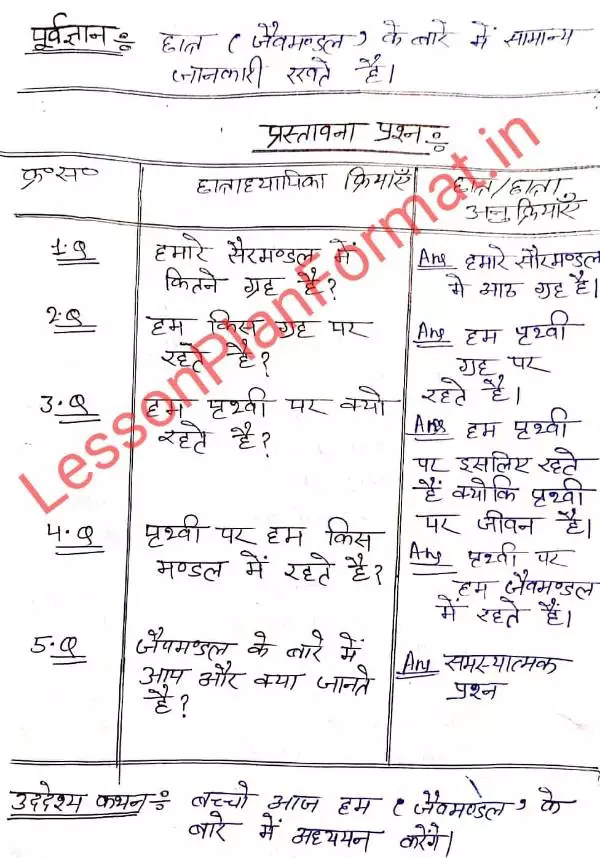 पूर्वज्ञान :- छात्र ( जैवमण्डल ) के बारे में सामान्य
जानकारी रखते है।
प्रस्तावना प्रश्न :-
क्र०स०
छात्राध्यापिका क्रियाएँ
छात्र/छात्रा
अनुक्रियाएँ
1.Q
हमारे सैरमण्डल में
कितने ग्रह है?
Ans हमारे सौरमण्डल
मे आठ ग्रह है।
2.Q
हम किस ग्रह पर
रहते है?
Ans हम पृथ्वी
ग्रह पर
रहते है।
3.Q
हम पृथ्वी पर क्यो
रहते है?
Ans हम पृथ्वी
पर इसलिए रहते
हैं क्योकि पृथ्वी
पर जीवन है।
4.Q
पृथ्वी पर हम किस
मण्डल में रहते है?
Ans पृथ्वी पर
हम जैवमण्डल
में रहते हैं।
5.Q
जैवमण्डल के बारे में
आप और क्या जानते
है?
Ans समस्यात्मक
प्रश्न
उददेश्य कथन :- बच्चो आज हम ( जैवमण्डल ) के
बारे में अध्ययन करेंगे।
LessonPlanFormat.in